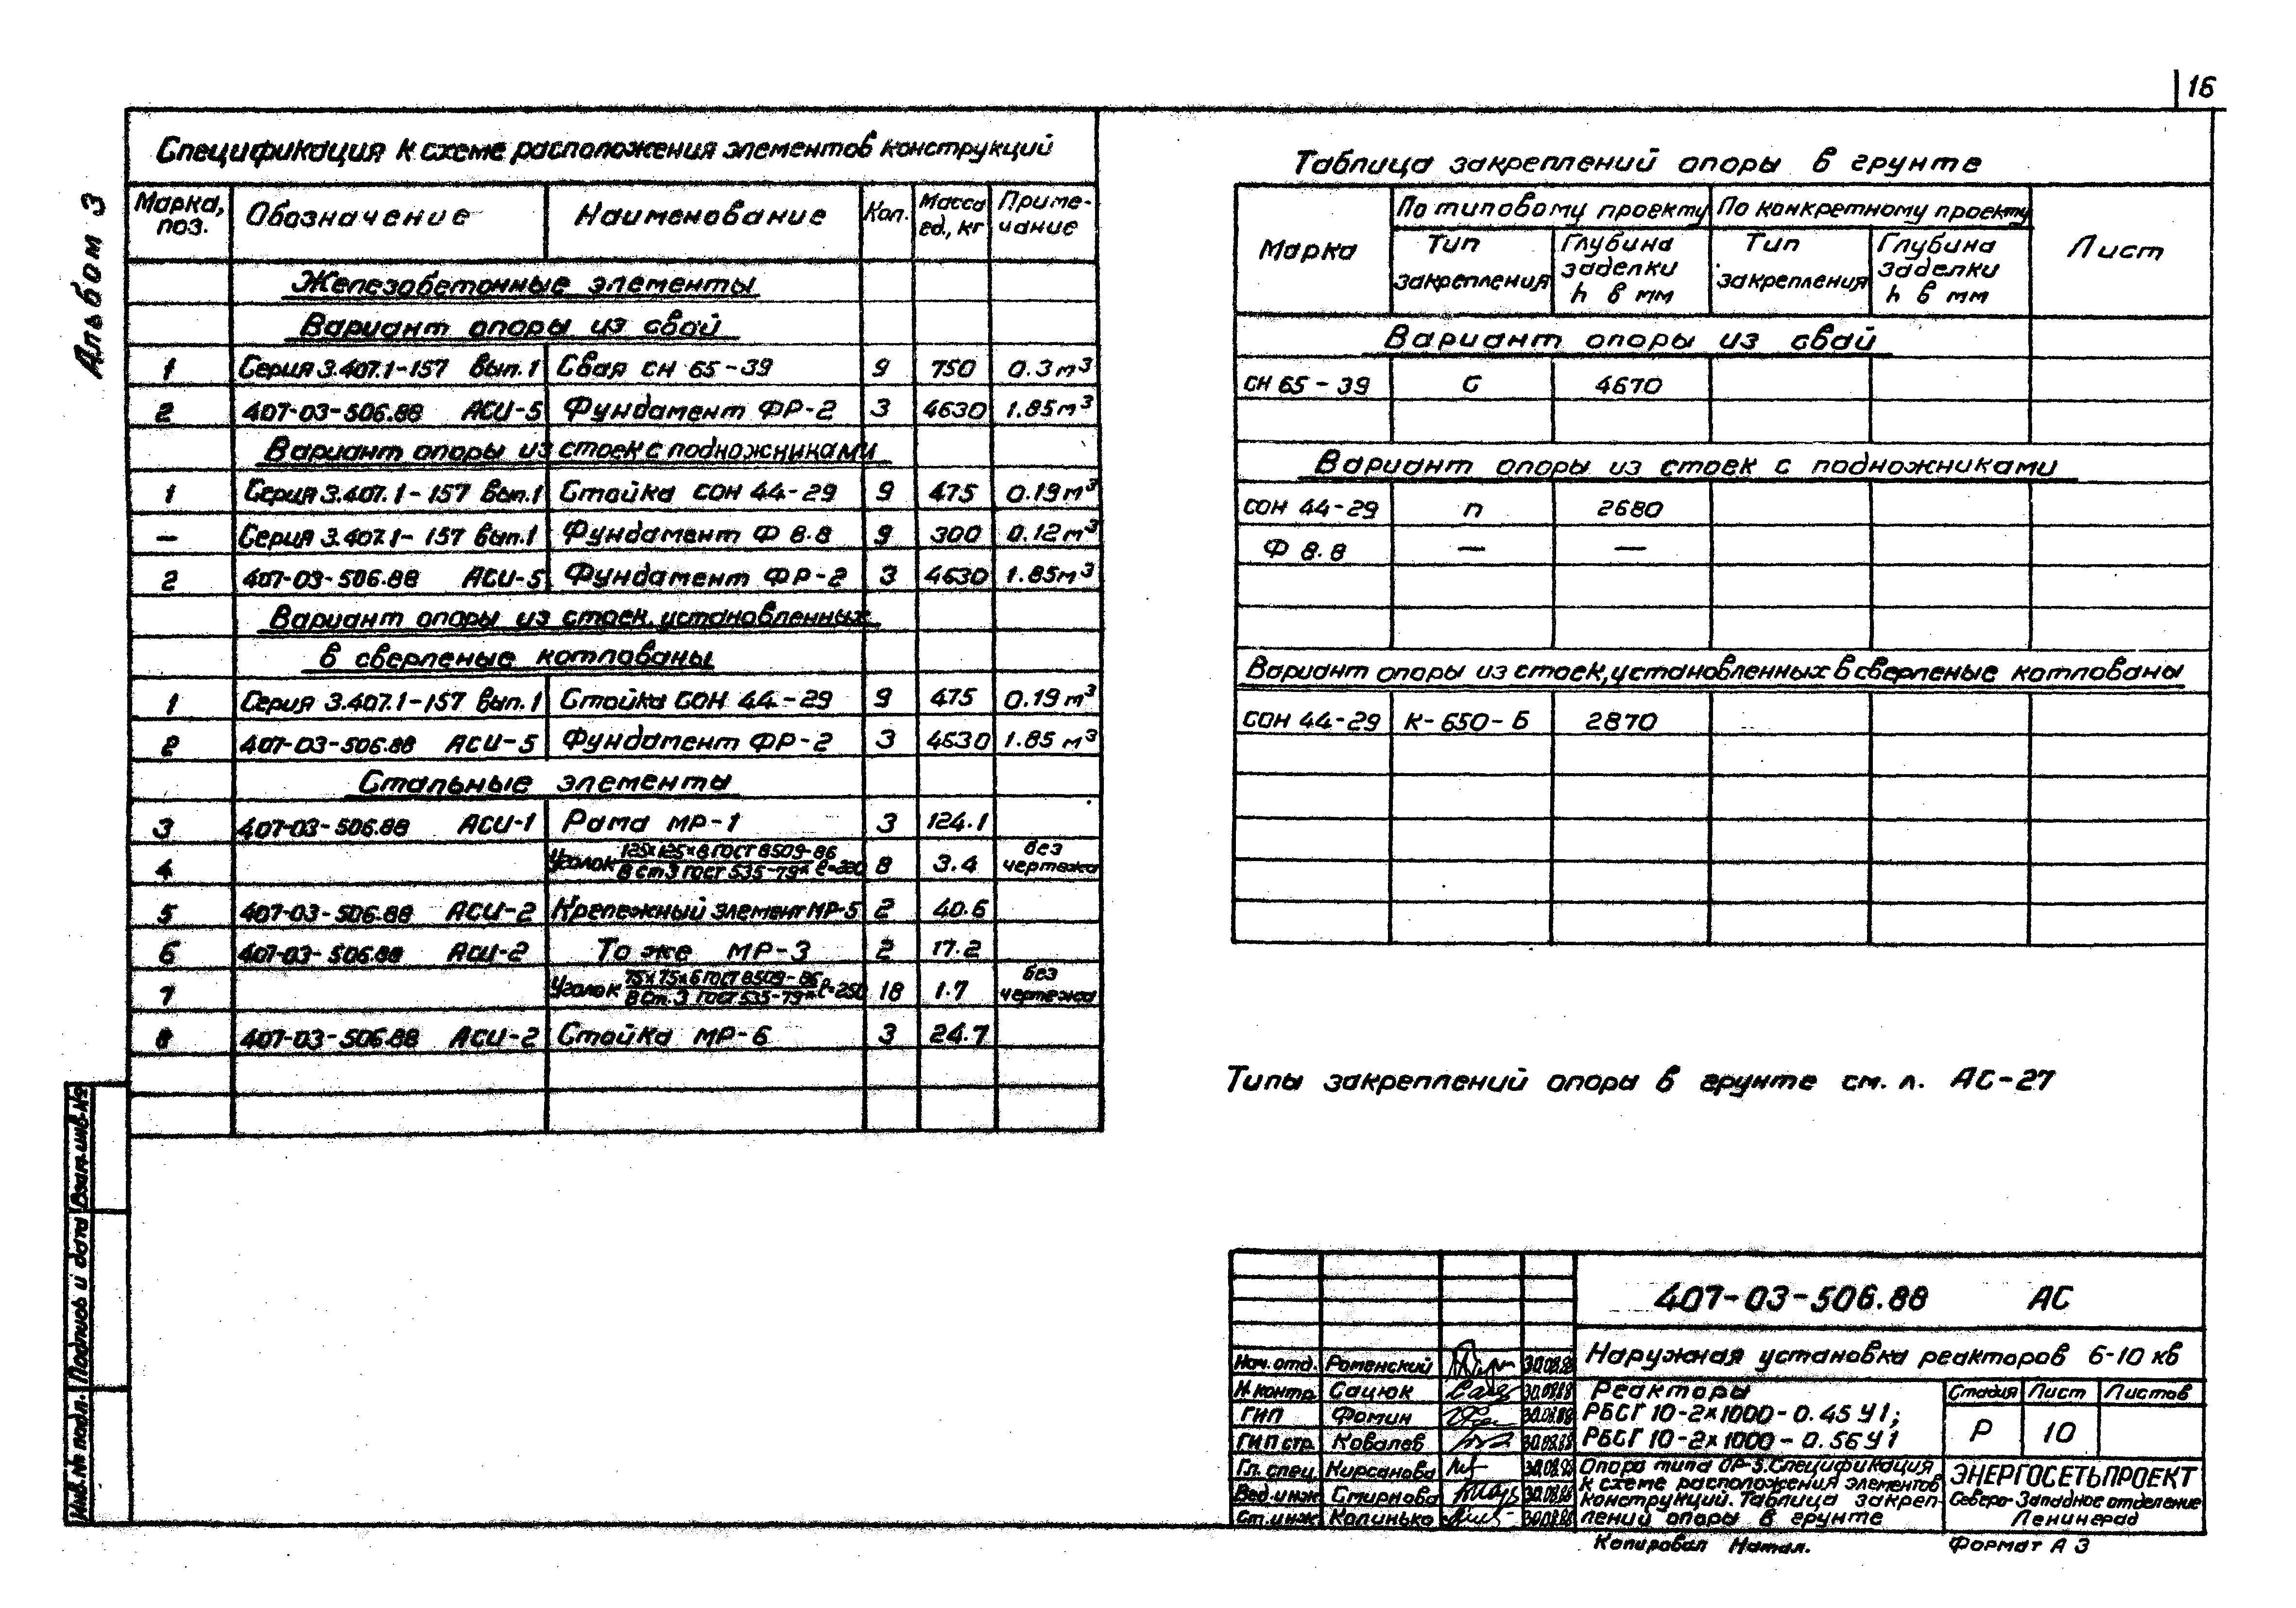 16
Альбом 3
Спецификация к схеме расположения элементов конструкций
Марка, поз. Обозначение Наименование Кол. Масса ед., кг Примечание
Железобетонные элементы
Вариант опоры из свай
1 Серия 3.407.1-157 вып.1 Свая СН 65-39 9 750 0.3м³
2 407-03-506.88 АСИ-5 Фундамент ФР-2 3 4630 1.85м³
Вариант опоры из стоек с подножниками
1 Серия 3.407.1-157 вып.1 Стойка СОН 44-29 9 475 0.19м³
— Серия 3.407.1-157 вып.1 Фундамент Ф 8.8 9 300 0.12м³
2 407-03-506.88 АСИ-5 Фундамент ФР-2 3 4630 1.85м³
Вариант опоры из стоек, установленных
в сверленые котлованы
1 Серия 3.407.1-157 вып.1 Стойка СОН 44-29 9 475 0.19м³
2 407-03-506.88 АСИ-5 Фундамент ФР-2 3 4630 1.85 м³
Стальные элементы
3 407-03-506.88 АСИ-1 Рама МР-1 3 124.1
4 Уголок 125х125х8 ГОСТ 8509-86 / В Ст3 ГОСТ 535-79* 8 3.4 без чертежа
5 407-03-506.88 АСИ-2 Крепежный элемент МР-5 2 40.6
6 407-03-506.88 АСИ-2 То же МР-3 2 17.2
7 Уголок 75х75х6 ГОСТ 8509-86 / В Ст.3 ГОСТ 535-79* ℓ=250 18 1.7 без чертежа
8 407-03-506.88 АСИ-2 Стойка МР-6 3 24.7
Таблица закреплений опоры в грунте
Марка По типовому проекту По конкретному проекту Лист
Тип закрепления Глубина заделки h в мм Тип закрепления Глубина заделки h в мм
Вариант опоры из свай
СН 65-39 С 4670
Вариант опоры из стоек с подножниками
СОН 44-29 П 2680
Ф 8.8 — —
Вариант опоры из стоек, установленных в сверленые котлованы
СОН 44-29 К-650-Б 2870
Типы закреплений опоры в грунте см. л. АС-27
Инв.№ подл. Подпись и дата Взам.инв.№
407-03-506.88 АС
Нач.отд. Роменский 30.08.88
Н.контр. Сацюк 30.08.88
ГИП Фомин 30.08.88
ГИП стр. Ковалев 30.08.88
Гл.спец. Кирсанова 30.08.88
Вед.инж. Смирнова 30.08.88
Ст.инж. Калинько 30.08.88
Наружная установка реакторов 6-10 кв
Реакторы
РБСГ 10-2х1000-0.45 У1;
РБСГ 10-2х1000-0.56 У1
Стадия Лист Листов
Р 10
Опора типа ОР-5. Спецификация
к схеме расположения элементов
конструкций. Таблица закреп-
лений опоры в грунте
ЭНЕРГОСЕТЬПРОЕКТ
Северо-Западное отделение
Ленинград
Копировал Натал. Формат А 3